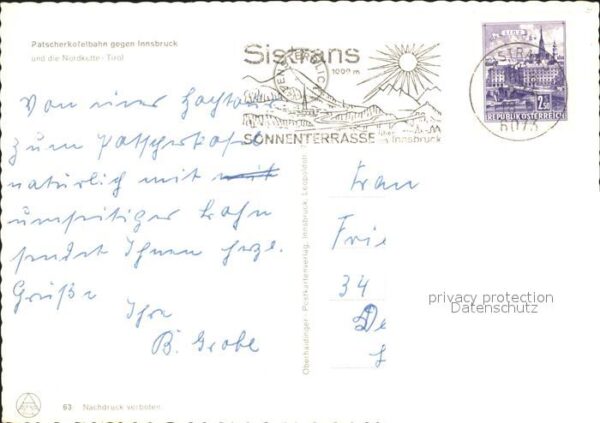 Patscherkofelbahn gegen Innsbruck
und die Nordkette · Tirol
Sistrans
1000 m
SONNENTERRASSE über Innsbruck
LINZ
2.50
REPUBLIK ÖSTERREICH
SISTRANS
6073
Von einer Hochtour
zum Patscherkofel
natürlich mit mit
umseitiger Bahn
sendet Ihnen herzl.
Grüße
Ihre
B. Grobe
Frau
Frie
34
De
privacy protection
Datenschutz
Oberhaidinger · Postkartenverlag, Innsbruck, Leopoldstr.
63 Nachdruck verboten